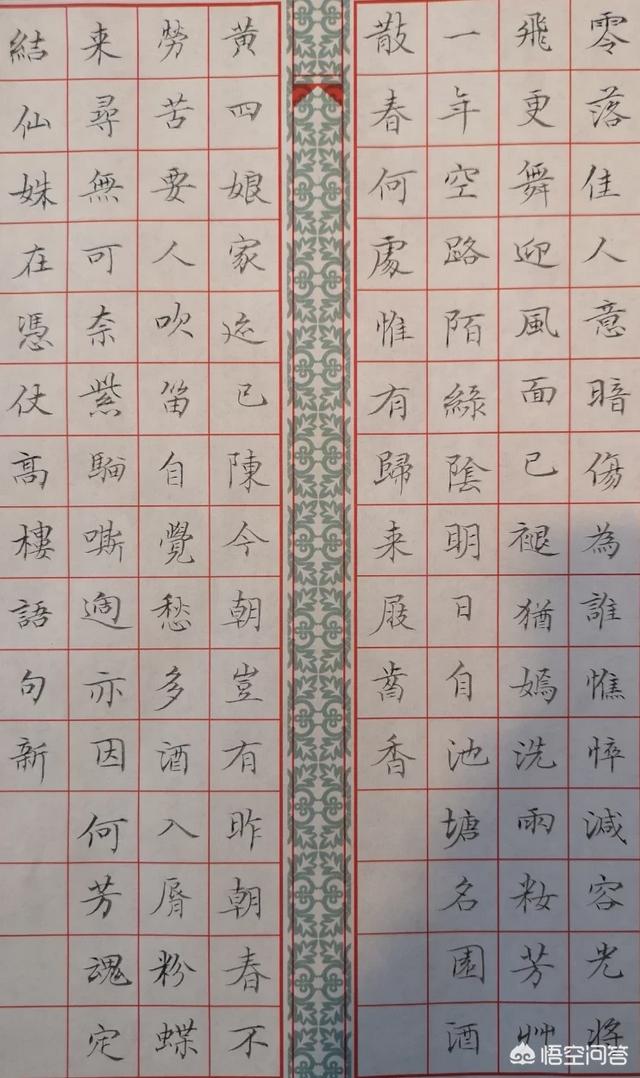 零落佳人意暗傷為誰憔悴減容光将
飛更舞迎風面已褪猶嫣洗雨粧芳艸
一年空路陌綠陰明日自池塘名園酒
散春何處惟有歸来屐齒香
黄四娘家迹已陳今朝豈有昨朝春不
勞苦要人吹笛自覺愁多酒入脣粉蝶
来尋無可奈紫騮嘶過亦因何芳魂定
結仙姝在憑仗高樓語句新
悟空问答